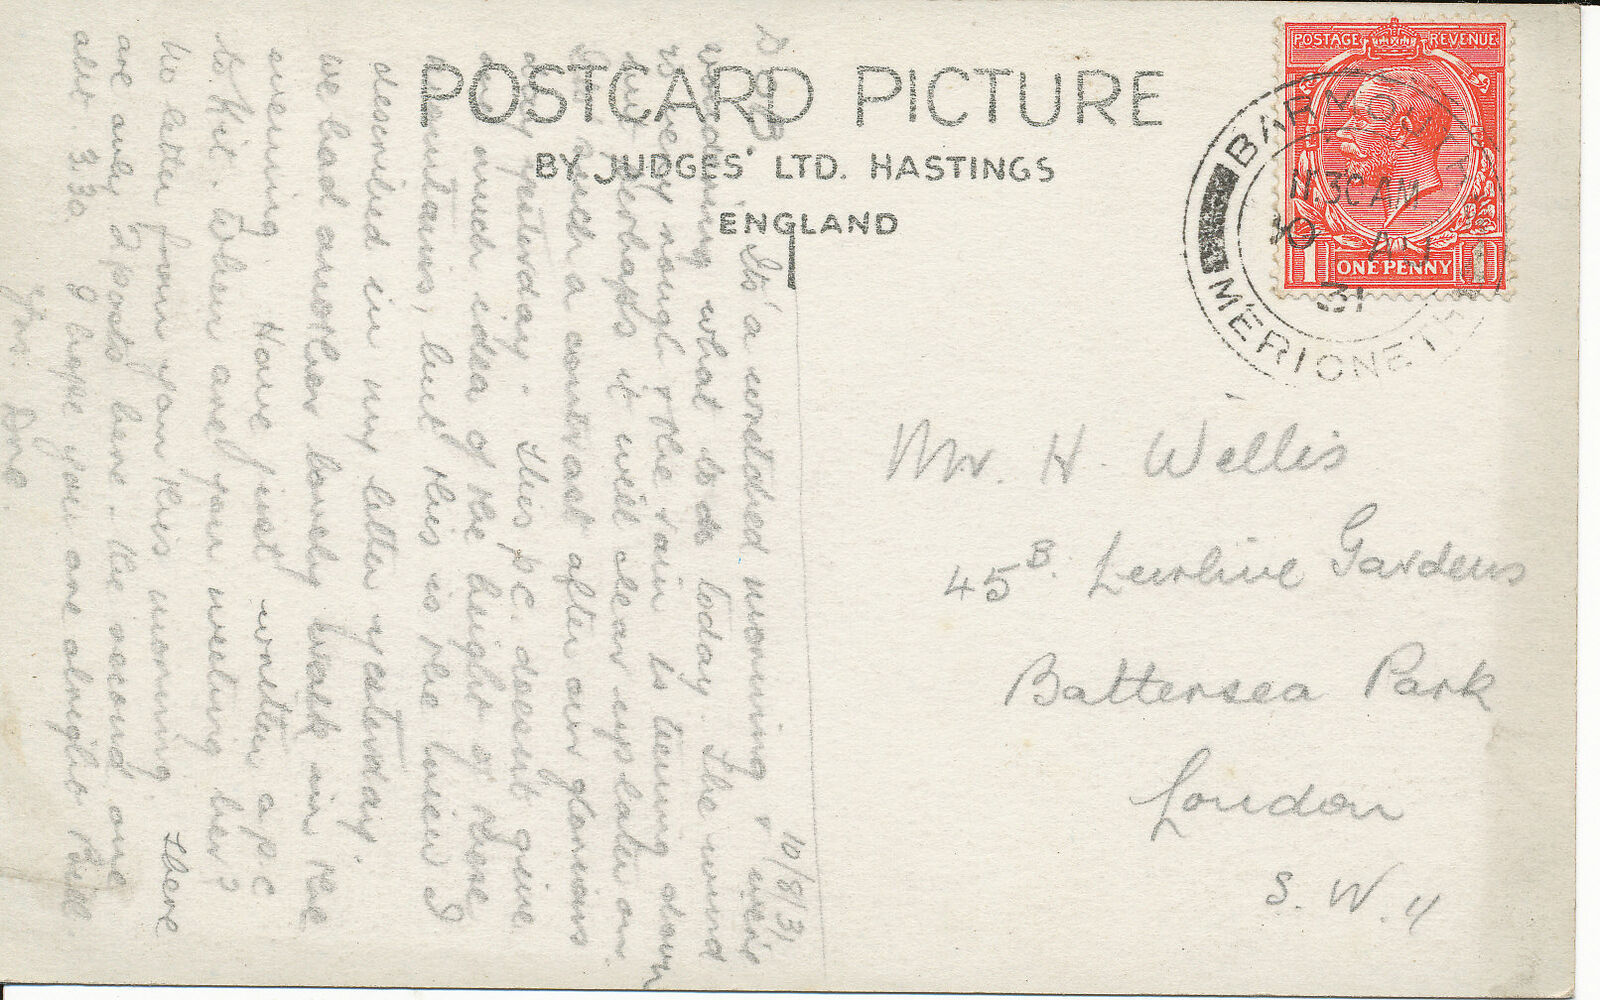 POSTCARD PICTURE
BY JUDGES' LTD. HASTINGS
ENGLAND
POSTAGE REVENUE
1 ONE PENNY 1
BARMOUTH
11.30 AM
10 AU
31
MERIONETH
Mr H. Wellis
45 B. Lurline Gardens
Battersea Park
London
S. W. 11
10/8/31
It's a wretched morning & we're
wondering what to do today. The wind
is very rough & the rain is teeming down
but perhaps it will clear up later on.
It's such a contrast after our glorious
day yesterday. This p.c. doesn't give
one much idea of the height of these
mountains, but this is the view I
described in my letter yesterday.
We had another lovely walk in the
evening. Have just written a p.c
to Kit. When are you meeting her?
No letter from you this morning. There
are only 2 posts here - the second one
abt 3.30. I hope you are alright Bill.
Yrs.